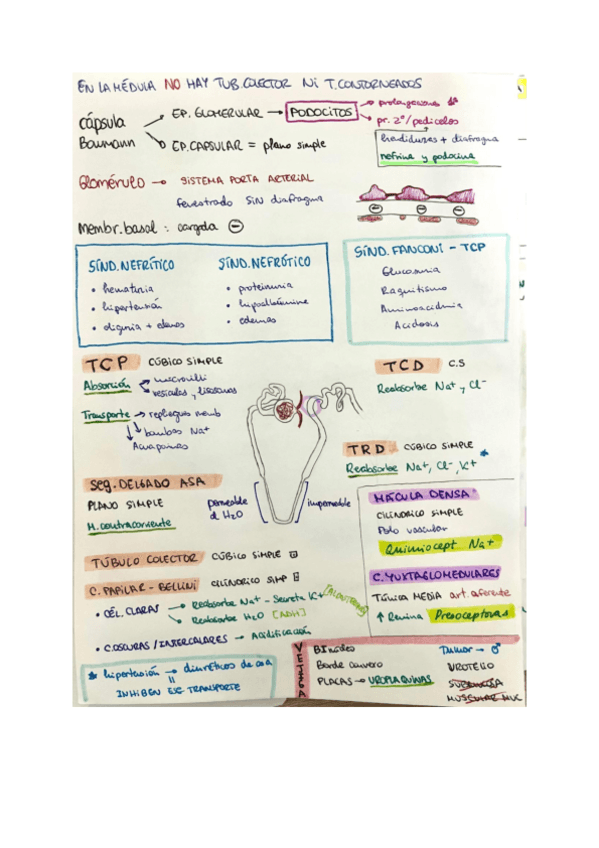 EN LA MÉDULA NO HAY TUB. COLECTOR NI T. CONTORNEADOS
Cápsula
Baumann
EP. GLOMERULAR → PODOCITOS
prolongaciones 1ª
pr. 2º/pedicelos
hendiduras + diafragma
nefrina y podocina
EP. CAPSULAR = plano simple
Glomérulo → SISTEMA PORTA ARTERIAL
fenestrado SIN diafragma
Membr. basal: cargada ⊖
SÍND. NEFRÍTICO
• hematuria
• hipertensión
• oliguria + edemas
SÍND. NEFRÓTICO
• proteinuria
• hipoalbúmine
• edemas
SÍND. FANCONI - TCP
Glucosuria
Raquitismo
Aminoacidnia
Acidosis
TCP CÚBICO SIMPLE
Absorción
microvilli
vesículas y lisosomas
Transporte → repliegues memb
bombas Na+
Acuaporinas
TCD C.S
Reabsorbe Na+ y Cl-
TRD CÚBICO SIMPLE
Reabsorbe Na+, Cl-, K+ *
Seg. DELGADO ASA
PLANO SIMPLE
M. contracorriente
permeable
al H2O
impermeable
MÁCULA DENSA
CILÍNDRICO SIMPLE
Polo vascular
Quimiocept Na+
C. YUXTAGLOMEDULARES
TÚNICA MEDIA art. aferente
↑ Renina Presoceptoras
TÚBULO COLECTOR CÚBICO SIMPLE
C. PAPILAR - BELLINI CILÍNDRICO SIMP
• CÉL. CLARAS → Reabsorbe Na+ - Secreta K+ [ALDOSTERONA]
→ Reabsorbe H2O [ADH]
• C. OSCURAS / INTERCALARES → Acidificación
* hipertensión → diuréticos de asa
=
INHIBEN ESE TRANSPORTE
VEJIGA
BINUCLEO
Borde
PLACAS → UROPLAQUINAS
Tumor → ♂
UROTELIO
SUBMUCOSA
MUSCULAR MUC